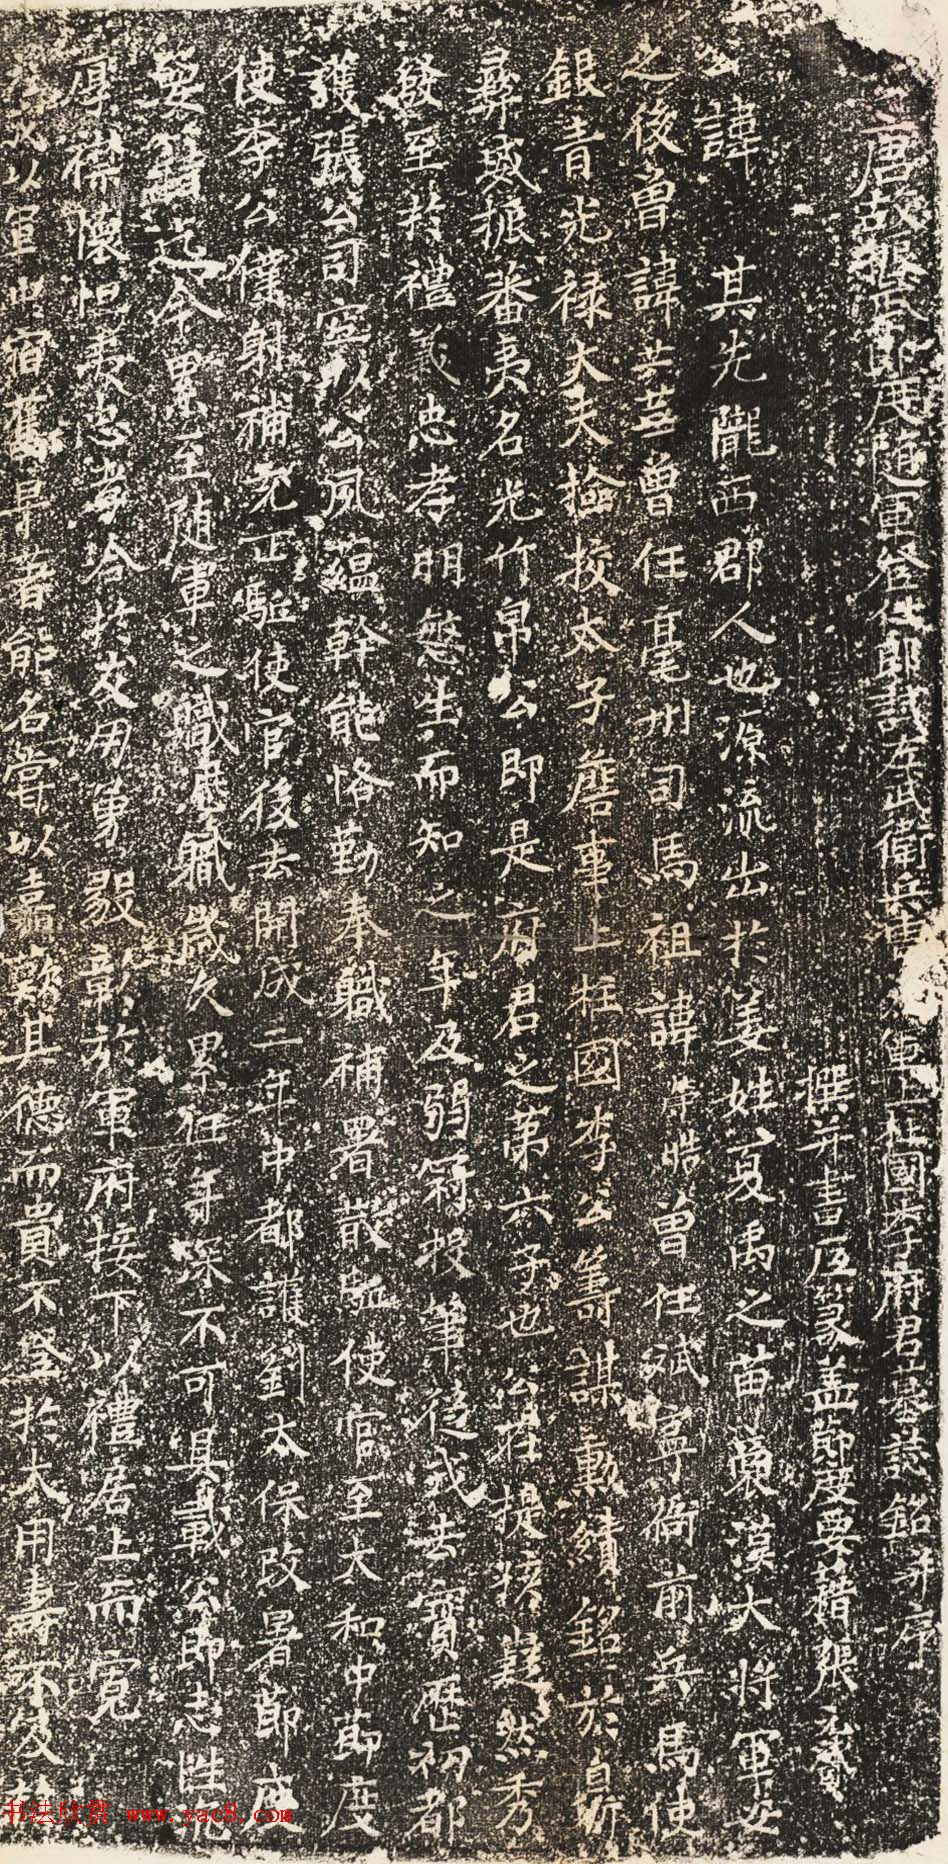 唐故振武節度随軍登仕郎試左武衛兵曹參軍上柱國李府君墓誌銘并序
撰并書及篆蓋節度要籍張元
公諱 其先隴西郡人也源流出於姜姓夏禹之苗裔漢大將軍安
之後曾諱芸芸曾任亳州司馬祖諱 晧曾任 寧衙前兵馬使
銀青光禄大夫檢挍太子詹事上柱國李公籌謀勳績銘於自所
彞威振番夷名光竹帛公即是府君之第六子也公在提孩嶷然秀
發至於禮義忠孝明慜生而知之年及弱 投筆從戎去寳歷初都
護張公司空以公夙藴幹能恪勤奉職補署散驅使官至大和中節度
使李公僕射補充正驅使官後去開成二年中都護劉太保改署節度
要籍迄今累至随軍之職應職歲久累任年深不可具載公即志性
厚襟懷怛 忠每合於友朋 毅彰於軍府接下以禮居上而寬
以軍 宿舊早著能名嘗以嘉 其德而貴不登於大用壽不及
书法欣赏 www.yac8.com